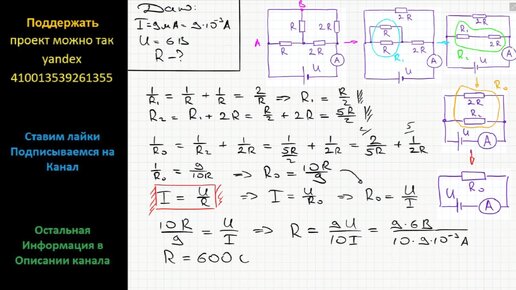 Поддержать
проект можно так
yandex
410013539261355
Ставим лайки
Подписываемся на
Канал
Остальная
Информация в
Описании канала
Дано:
I = 9мА = 9·10⁻³А
U = 6В
R - ?
A
B
R
2R
R
2R
U
A
2R
R
R
2R
R₁
U
A
2R
R₁
2R
R₂
U
A
R₀
2R
R₂
U
A
R₀
U
A
1/R₁ = 1/R + 1/R = 2/R ⇒ R₁ = R/2
R₂ = R₁ + 2R = R/2 + 2R = 5R/2
1/R₀ = 1/R₂ + 1/2R = 1/(5R/2) + 1/2R = 2/5R + 1/2R
1/R₀ = 9/10R ⇒ R₀ = 10R/9
I = U/R ⇒ I = U/R₀ ⇒ R₀ = U/I
10R/9 = U/I ⇒ R = 9U/10I = 9·6В/10·9·10⁻³А
R = 600 С